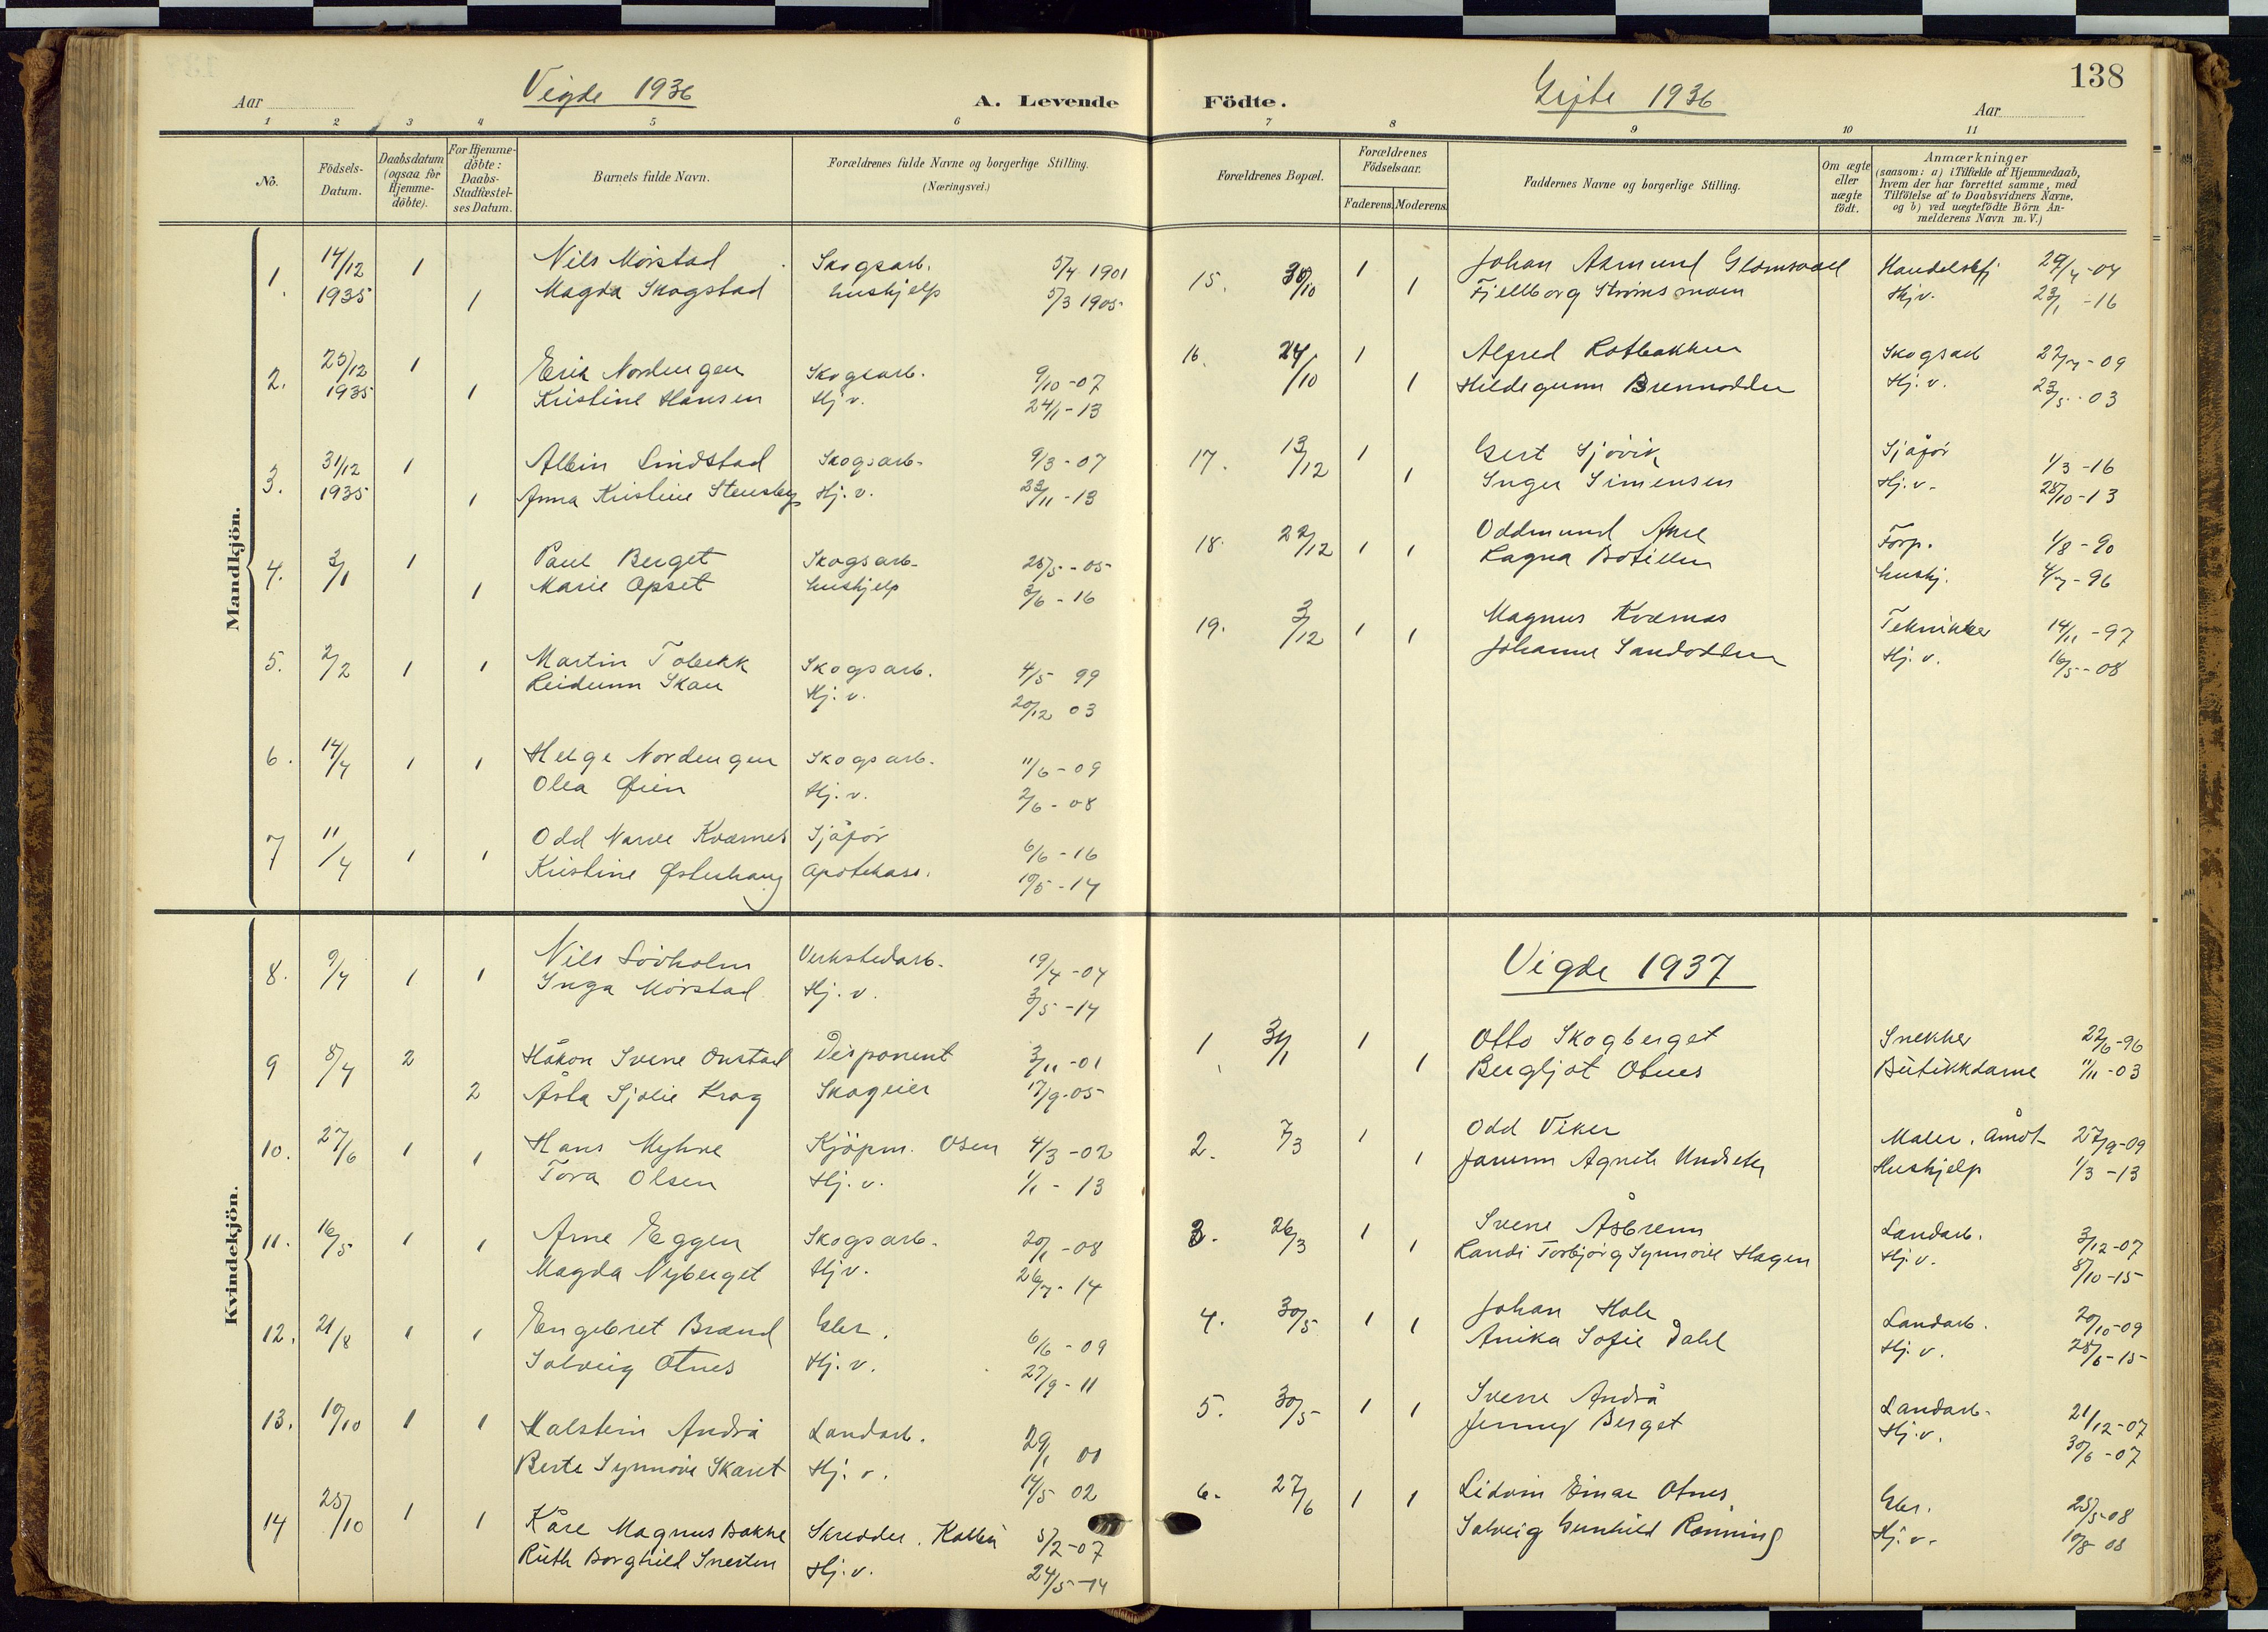 Aar
Vigde 1936
A. Levende
1 2 3 4 5 6
No.
Födsels-Datum.
Daabsdatum (ogsaa for Hjemme-döbte).
For Hjemme-döbte: Daabs-Stadfæstel-ses Datum.
Barnets fulde Navn.
Forældrenes fulde Navne og borgerlige Stilling.
(Næringsvei.)
Mandkjön.
1. 14/12 1 Nils Mörstad Skogsarb. 5/4 1901
1935 1 Magda Skogstad hushjelp 5/3 1905
2. 25/12 1 Erik Nordengen Skogsarb. 9/10-07
1935 1 Kristine Hansen Hj v. 24/1-13
3. 31/12 1 Albin Lindstad Skogsarb. 9/3-07
1935 1 Anna Kristine Stensby Hj. v. 23/11-13
4. 3/1 1 Paul Berget Skogsarb. 25/5-05
1 Marie Opset hushjelp 3/6-16
5. 2/2 1 1 Martin Tobekk Skogsarb. 4/5 99
Reidunn Skau Hj. v. 20/12 03
6. 14/4 1 1 Helge Nordengen Skogsarb. 11/6-09
Olea Øien Hj. v. 2/6-08
7 11/4 1 1 Odd Narve Kværnes Sjåför 6/6-16
Kristine Østerhaug apotekass. 10/5-14
Kvindekjön.
8. 9/4 1 1 Nils Lövholm Verkstedarb. 19/4-04
Inga Mörstad Hj. v. 3/5-14
9 8/4 2 Håkon Sverre Onstad Disponent 3/11-01
2 Åsta Sjølie Krog Skogeier 17/9-05
10. 27/6 1 1 Hans Myhre Kjöpm. Osen 4/3-02
Tora Olsen Hj. v. 1/1-13
11. 16/5 1 1 Arne Eggen Skogsarb. 20/1-08
Magda Nyberget Hj v. 26/7-14
12. 21/8 1 1 Engebret Brænd Gbr. 6/6-09
Solveig Otnes Hj. v. 27/9-11
13. 10/10 1 1 Halstein Andrå Landarb. 29/1 00
Berte Synnöve Skaret Hj. v. 14/5 02
14 25/10 1 1 Kåre Magnus Bakke Skredder. 5/2-07
Ruth Borghild Snerten Hj. v. 24/5-14
Födte.
Gifte 1936
Aar
138
7 8 9 10 11
Forældrenes Bopæl.
Forældrenes Födselsaar.
Faderens. Moderens.
Faddernes Navne og borgerlige Stilling.
Om ægte eller uægte födt.
Anmærkninger
(saasom: a) i Tilfælde af Hjemmedaab, hvem der har forrettet samme, med Tilföielse af to Daabsvidners Navne, og b) ved uægtefödte Börn Anmelderens Navn m. V.)
15. 30/10 1 Johan Asmund Glomsvoll Handelsbfj 29/4-04
1 Fjellborg Strömsmoen Hj v. 23/1-16
16. 24/10 1 Alfred Rotbakken Skogsarb 27/7-09
1 Hildegunn Brennodden Hj. v. 23/5-03
17. 13/12 1 Gert Sjövik Sjåför 1/3-16
1 Inger Simensen Hj. v. 28/10-13
18. 22/12 1 1 Oddmund Forp. 1/8-90
Ragna Botillen hushj. 4/7-96
19. 3/12 1 1 Magnus Kværnes Tekniker 14/11-97
Johanne Sandodden Hj. v. 16/5-08
Vigde 1937
1 31/1 1 Otto Skogberget Snekker 22/6-96
1 Bergljot Otnes Butikkdame 11/11-03
2. 7/3 1 Odd Viker Maler, Åmot 27/9-09
1 Jorunn Agnete Undseth Hushjelp 1/3-13
3. 26/3 1 Sverre Åsbrenn Landarb. 3/12-07
1 Randi Torbjörg Synnöve Hagen Hj. v. 8/10-15
4. 30/5 1 1 Johan Hole Landarb. 20/10-09
Anika Sofie Dahl Hj. v. 28/6-15
5. 30/5 1 1 Sverre Andrå Landarb. 21/12-07
Jenny Berget Hj. v. 30/6-07
6. 27/6 1 1 Lidvin Einar Otnes Gbr. 25/5-08
Solveig Gunhild Rönning Hj. v. 10/8 08